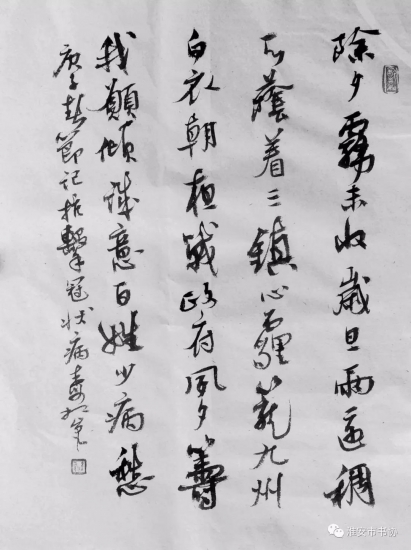 除夕霧未收歲旦雨還稠
蔭着三鎮心霾籠九州
白衣朝戰政府夙夕籌
我願傾誠意百姓少病愁
庚子春節記抗擊冠狀病毒
淮安市书协